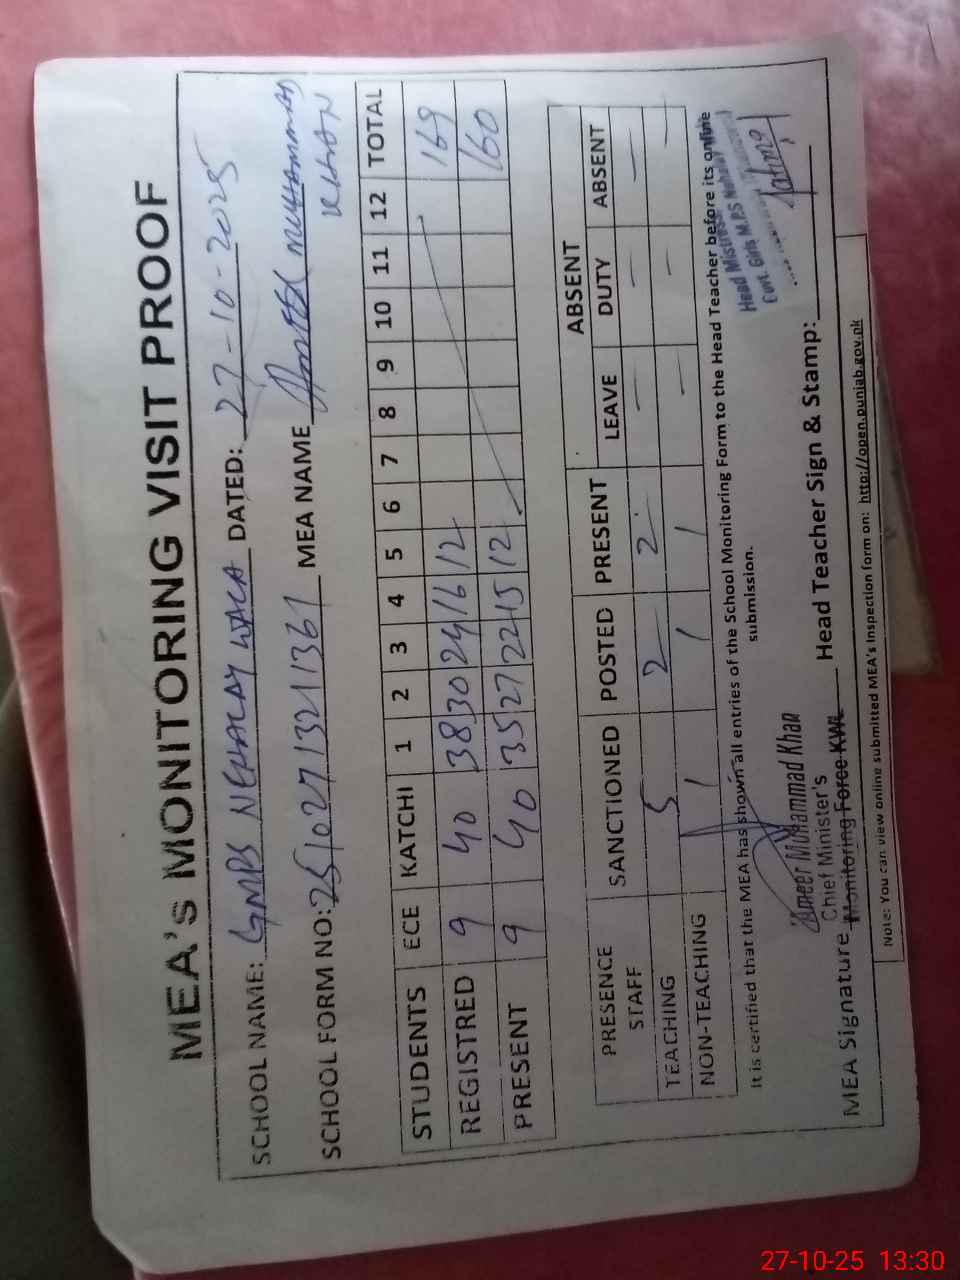 MEA's MONITORING VISIT PROOF
SCHOOL NAME: GMPS NEHALAY WALA DATED: 27-10-2025
SCHOOL FORM NO: 25102713211361 MEA NAME Ameer Muhammad Khan
STUDENTS ECE KATCHI 1 2 3 4 5 6 7 8 9 10 11 12 TOTAL
REGISTRED 9 40 38 30 24 16 12 169
PRESENT 9 40 35 27 22 15 12 160
PRESENCE STAFF SANCTIONED POSTED PRESENT ABSENT
LEAVE DUTY ABSENT
TEACHING 5 2 2 — — —
NON-TEACHING 1 1 1 — — —
It is certified that the MEA has shown all entries of the School Monitoring Form to the Head Teacher before its online
submission.
Ameer Muhammad Khan
Chief Minister's
Monitoring Force KWL
Head Mistress
Govt. Girls M.P.S
MEA Signature Head Teacher Sign & Stamp: Fatima
Note: You can view online submitted MEA's Inspection form on: http://open.punjab.gov.pk
27-10-25 13:30